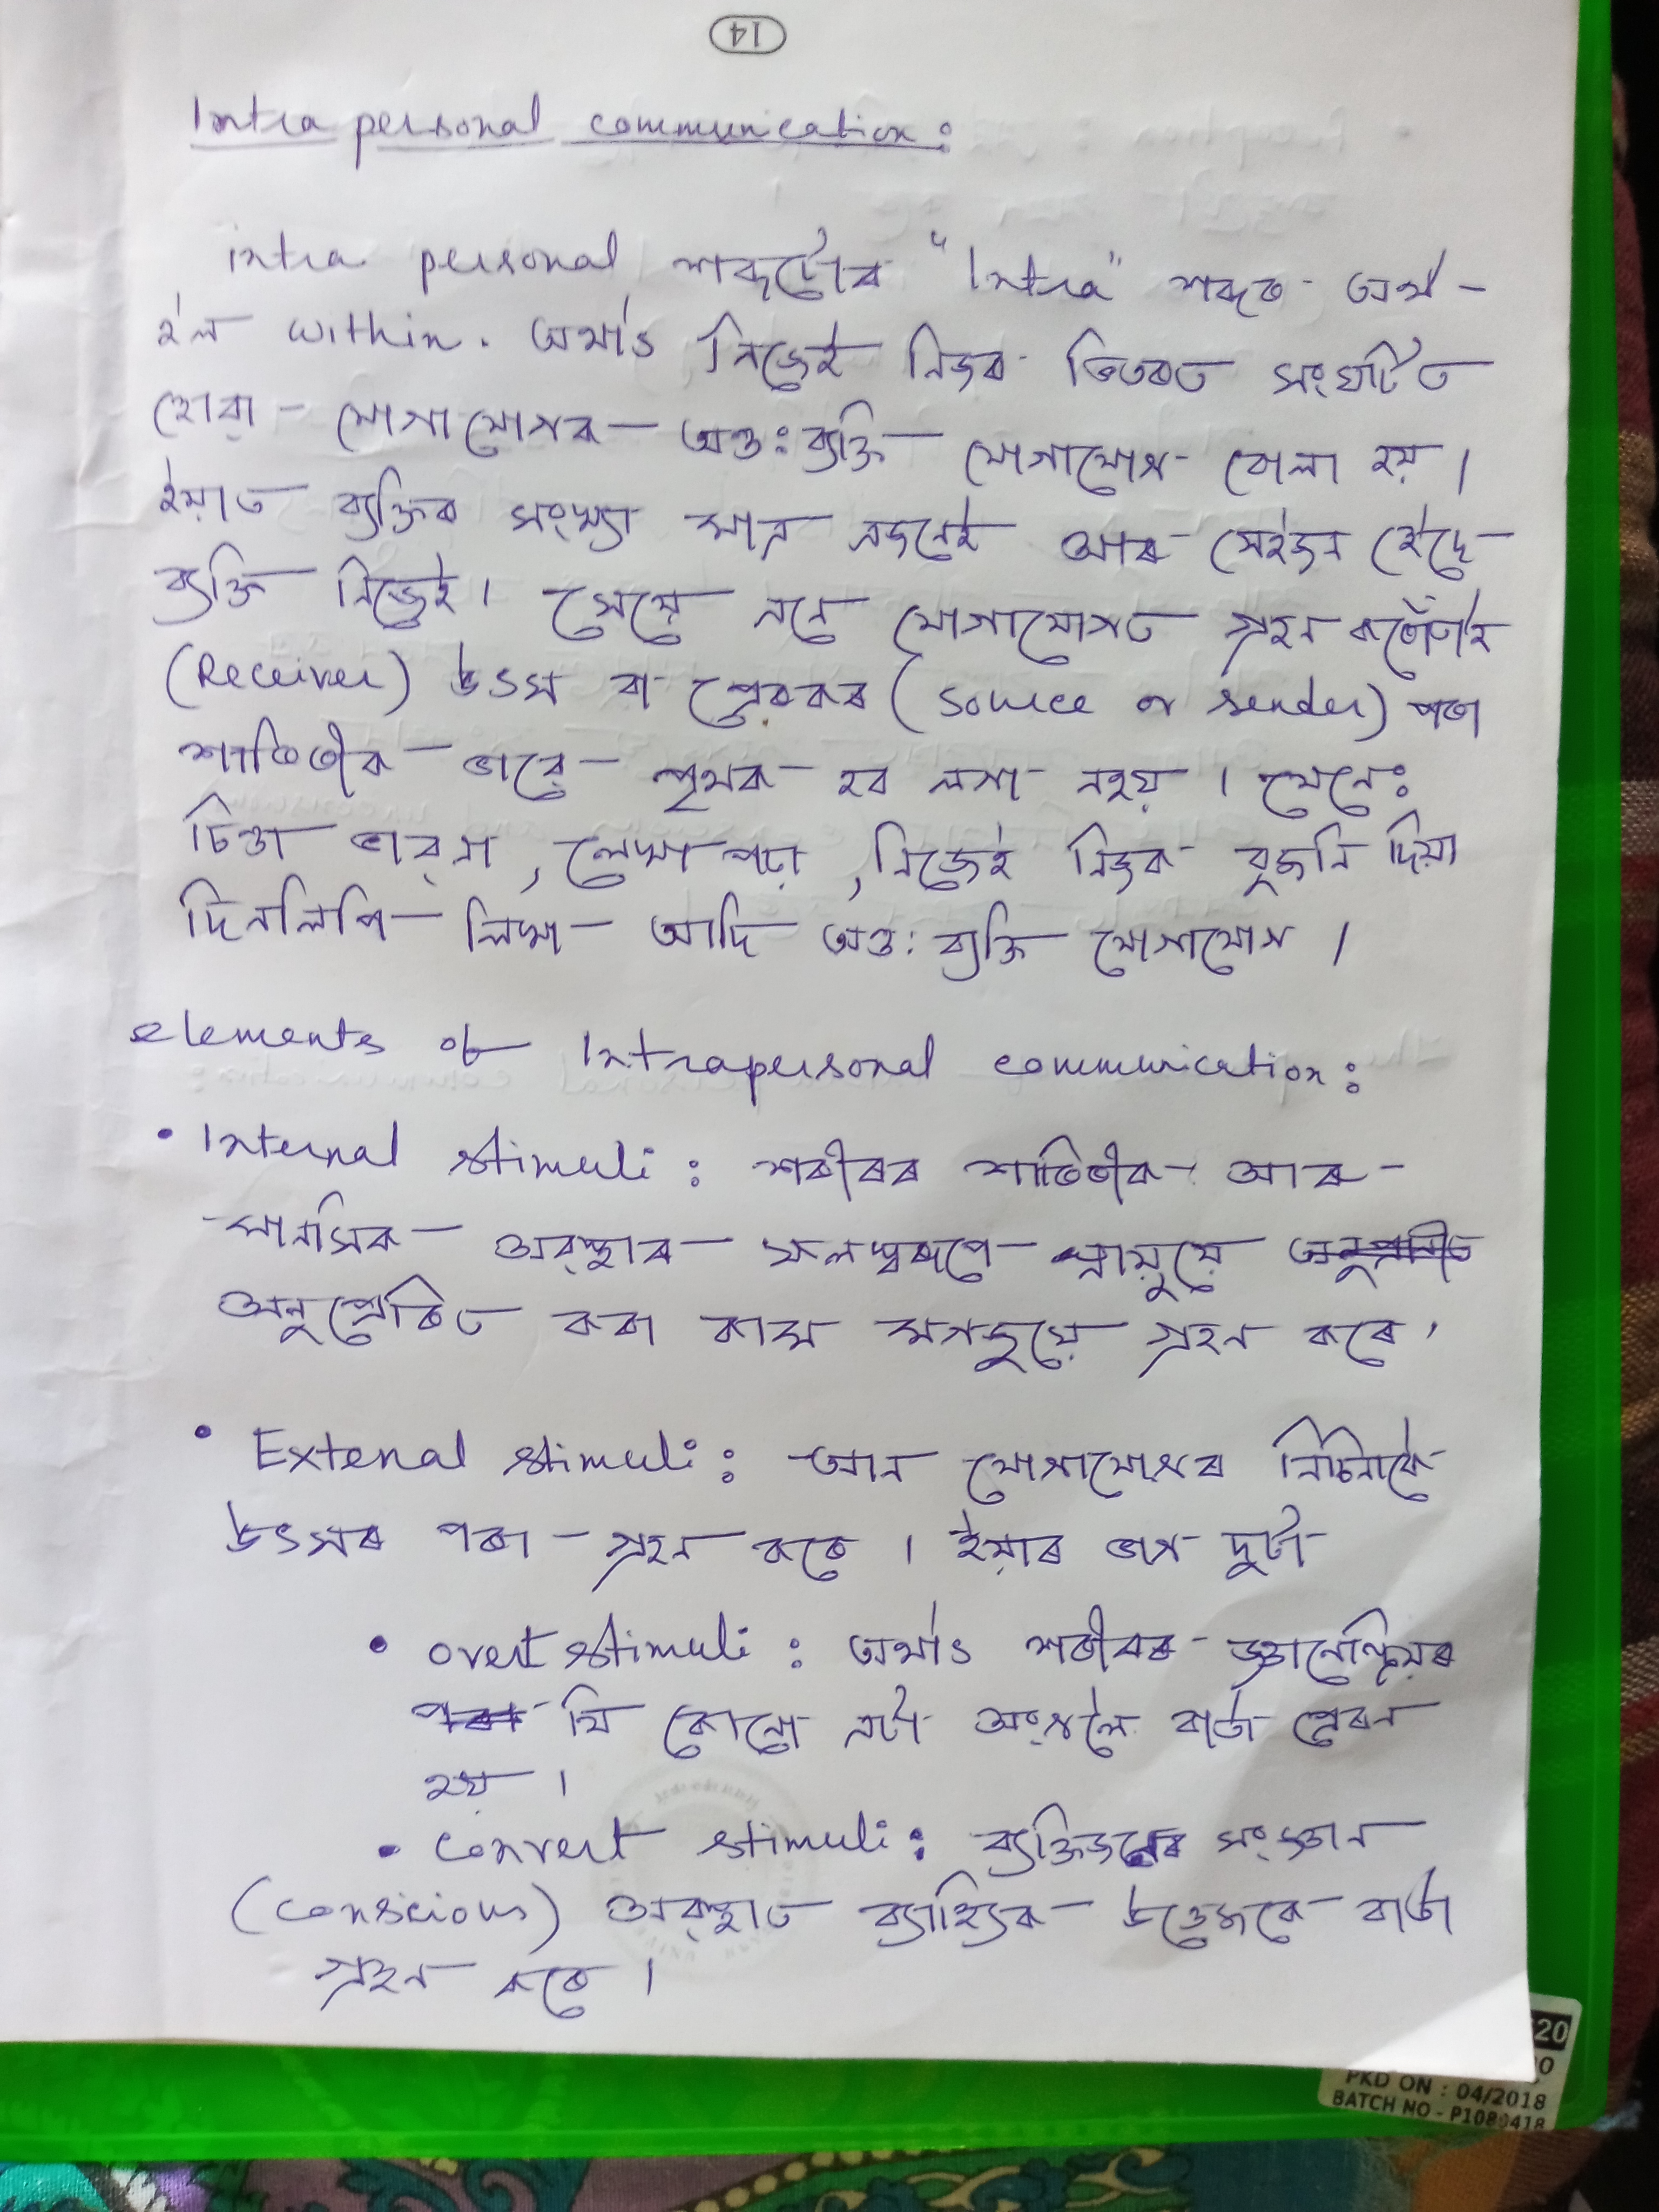 14
Intra personal communication:
intra personal শব্দটোৰ "Intra" শব্দৰ অৰ্থ -
হ'ল within. অৰ্থাৎ নিজেই নিজৰ ভিতৰত সংঘটিত
হোৱা - যোগাযোগক অন্ত:ব্যক্তি যোগাযোগ বোলা হয় ।
ইয়াত ব্যক্তিৰ সংখ্যা মাত্ৰ এজনেই আৰু সেইজন হৈছে
ব্যক্তি নিজেই। সেয়ে এনে যোগাযোগত গ্ৰহন কৰোঁতাই
(Receiver) উৎস বা প্ৰেৰকৰ (source or sender) পৰা
শাৰিৰীক ভাৱে পৃথক হব লগা নহয় । যেনে:
চিন্তা ভাৱনা , লেখা পঢ়া , নিজেই নিজক বুজনি দিয়া
দিনলিপি লিখা আদি অন্ত: ব্যক্তি যোগাযোগ ।
elements of Intrapersonal communication:
• Internal stimuli : শৰীৰৰ শাৰিৰীক আৰু
মানসিক অৱস্থাৰ ফলস্বৰূপে স্নায়ুয়ে
অনুপ্ৰেৰিত কৰা কাম মগজুয়ে গ্ৰহন কৰে ।
• Extenal stimuli : আন যোগাযোগৰ নিচিনাকৈ
উৎসৰ পৰা - গ্ৰহন কৰে । ইয়াৰ ভাগ দুটা
• overt stimuli : অৰ্থাৎ শৰীৰৰ জ্ঞানেন্দ্ৰিয়ৰ
পৰা যি কোনো এটা অংগলৈ বাৰ্তা প্ৰেৰন
হয় ।
• convert stimuli : ব্যক্তিজনৰ সংজ্ঞান
(conscious) অৱস্থাত ব্যাহ্যিক উত্তেজকে বাৰ্তা
গ্ৰহন কৰে ।
20
0
PKD ON : 04/2018
BATCH NO - P1080418